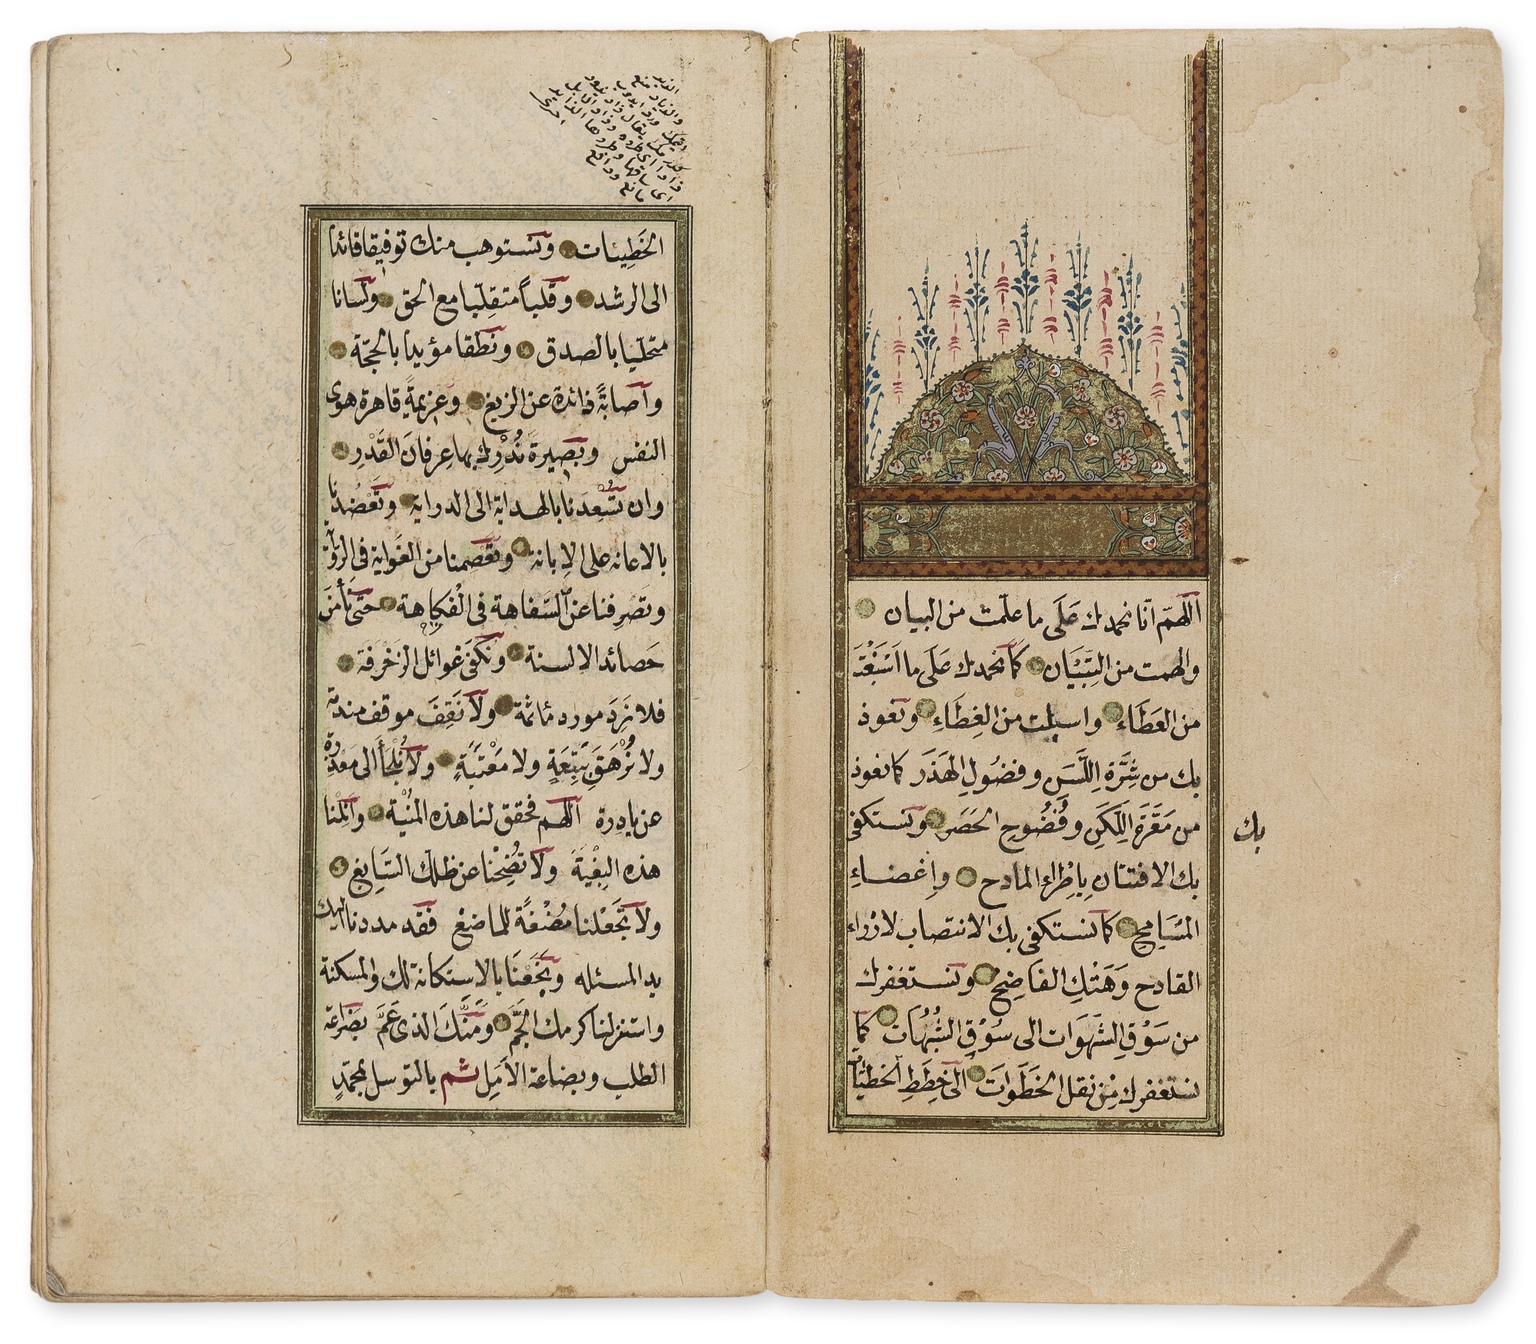 اللهمّ انّا نحمدك عَلَى ما علّمت من البيان
والهمت من التِّبْيَان كما نحمدك عَلَى ما اَسْبَغْتَ
من العَطَاءِ واسبلت من الغِطَاءِ ونعوذ
بك من شِرَّةِ اللَّسَنِ وفضُولِ الهَذَرِ كما نعوذ
من مَعَّرَةِ اللَّكَنِ وفُضُوحِ الحَصَرِ ونستكفى
بك
بك الافتتان بِاِطْراءِ المادح وإغضاءِ
المسَامِحِ كما نستكفى بك الانتصاب لازْراء
القادح وَهَتْكِ الفَاضِحِ ونستغفرك
من سَوْقِ الشَّهَوَات الى سُوْقِ الشُّبُهَات كَمَا
نستغفرك مِنْ نقل الخَطَوَات الى خِطَطِ الخطيئات
الخَطِيئات ونستوهب منك توفيقا قائدًا
الى الرشد وقلباً متقلّبا مع الحق ولسانا
متحلّيا بالصدق ونطقا مؤيداً بالحجّة
واصابةً ذائدة عن الزيغ وعزيمةً قاهرة هوى
النفس وبصيرة نُدْرِك بها عِرفان القَدْرِ
وان تُسْعِدَنا بالهداية الى الدراية وتَعْضُدَنا
بالاعانة على الاِبانة وتعصمنا من الغَواية فى الرِّواية
وتصرفنا عن السّفاهة فى الفكاهة حتى نأمَنَ
حَصائد الالسنة ونكفى غوائل الزخرفة
فلا نرِدَ مورد مأثمة ولا نَقِفَ موقف مندمة
ولا نُرْهَقَ بتَبِعَةٍ ولا مَعْتَبَةٍ ولا نُلجَأَ الى مَعْذِرة
عن بادِرة اللهم فحقق لنا هذه المُنْية وانِلْنا
هذه البِغْيَة ولا تُضْحِنا عن ظلّك السَّابِغ
ولا تجَعْلنا مُضْغةً للماضغ فقد مددنا اليك
يد المسئله وبَخَعْنَا بالاستكانة لك والمسكنة
واستنزلنا كرمك الجَمَّ ومَنَّكَ الذى عَمَّ بضَراعة
الطلب وبضاعة الاَمَلِ ثم بالتوسل بمحمّدٍ